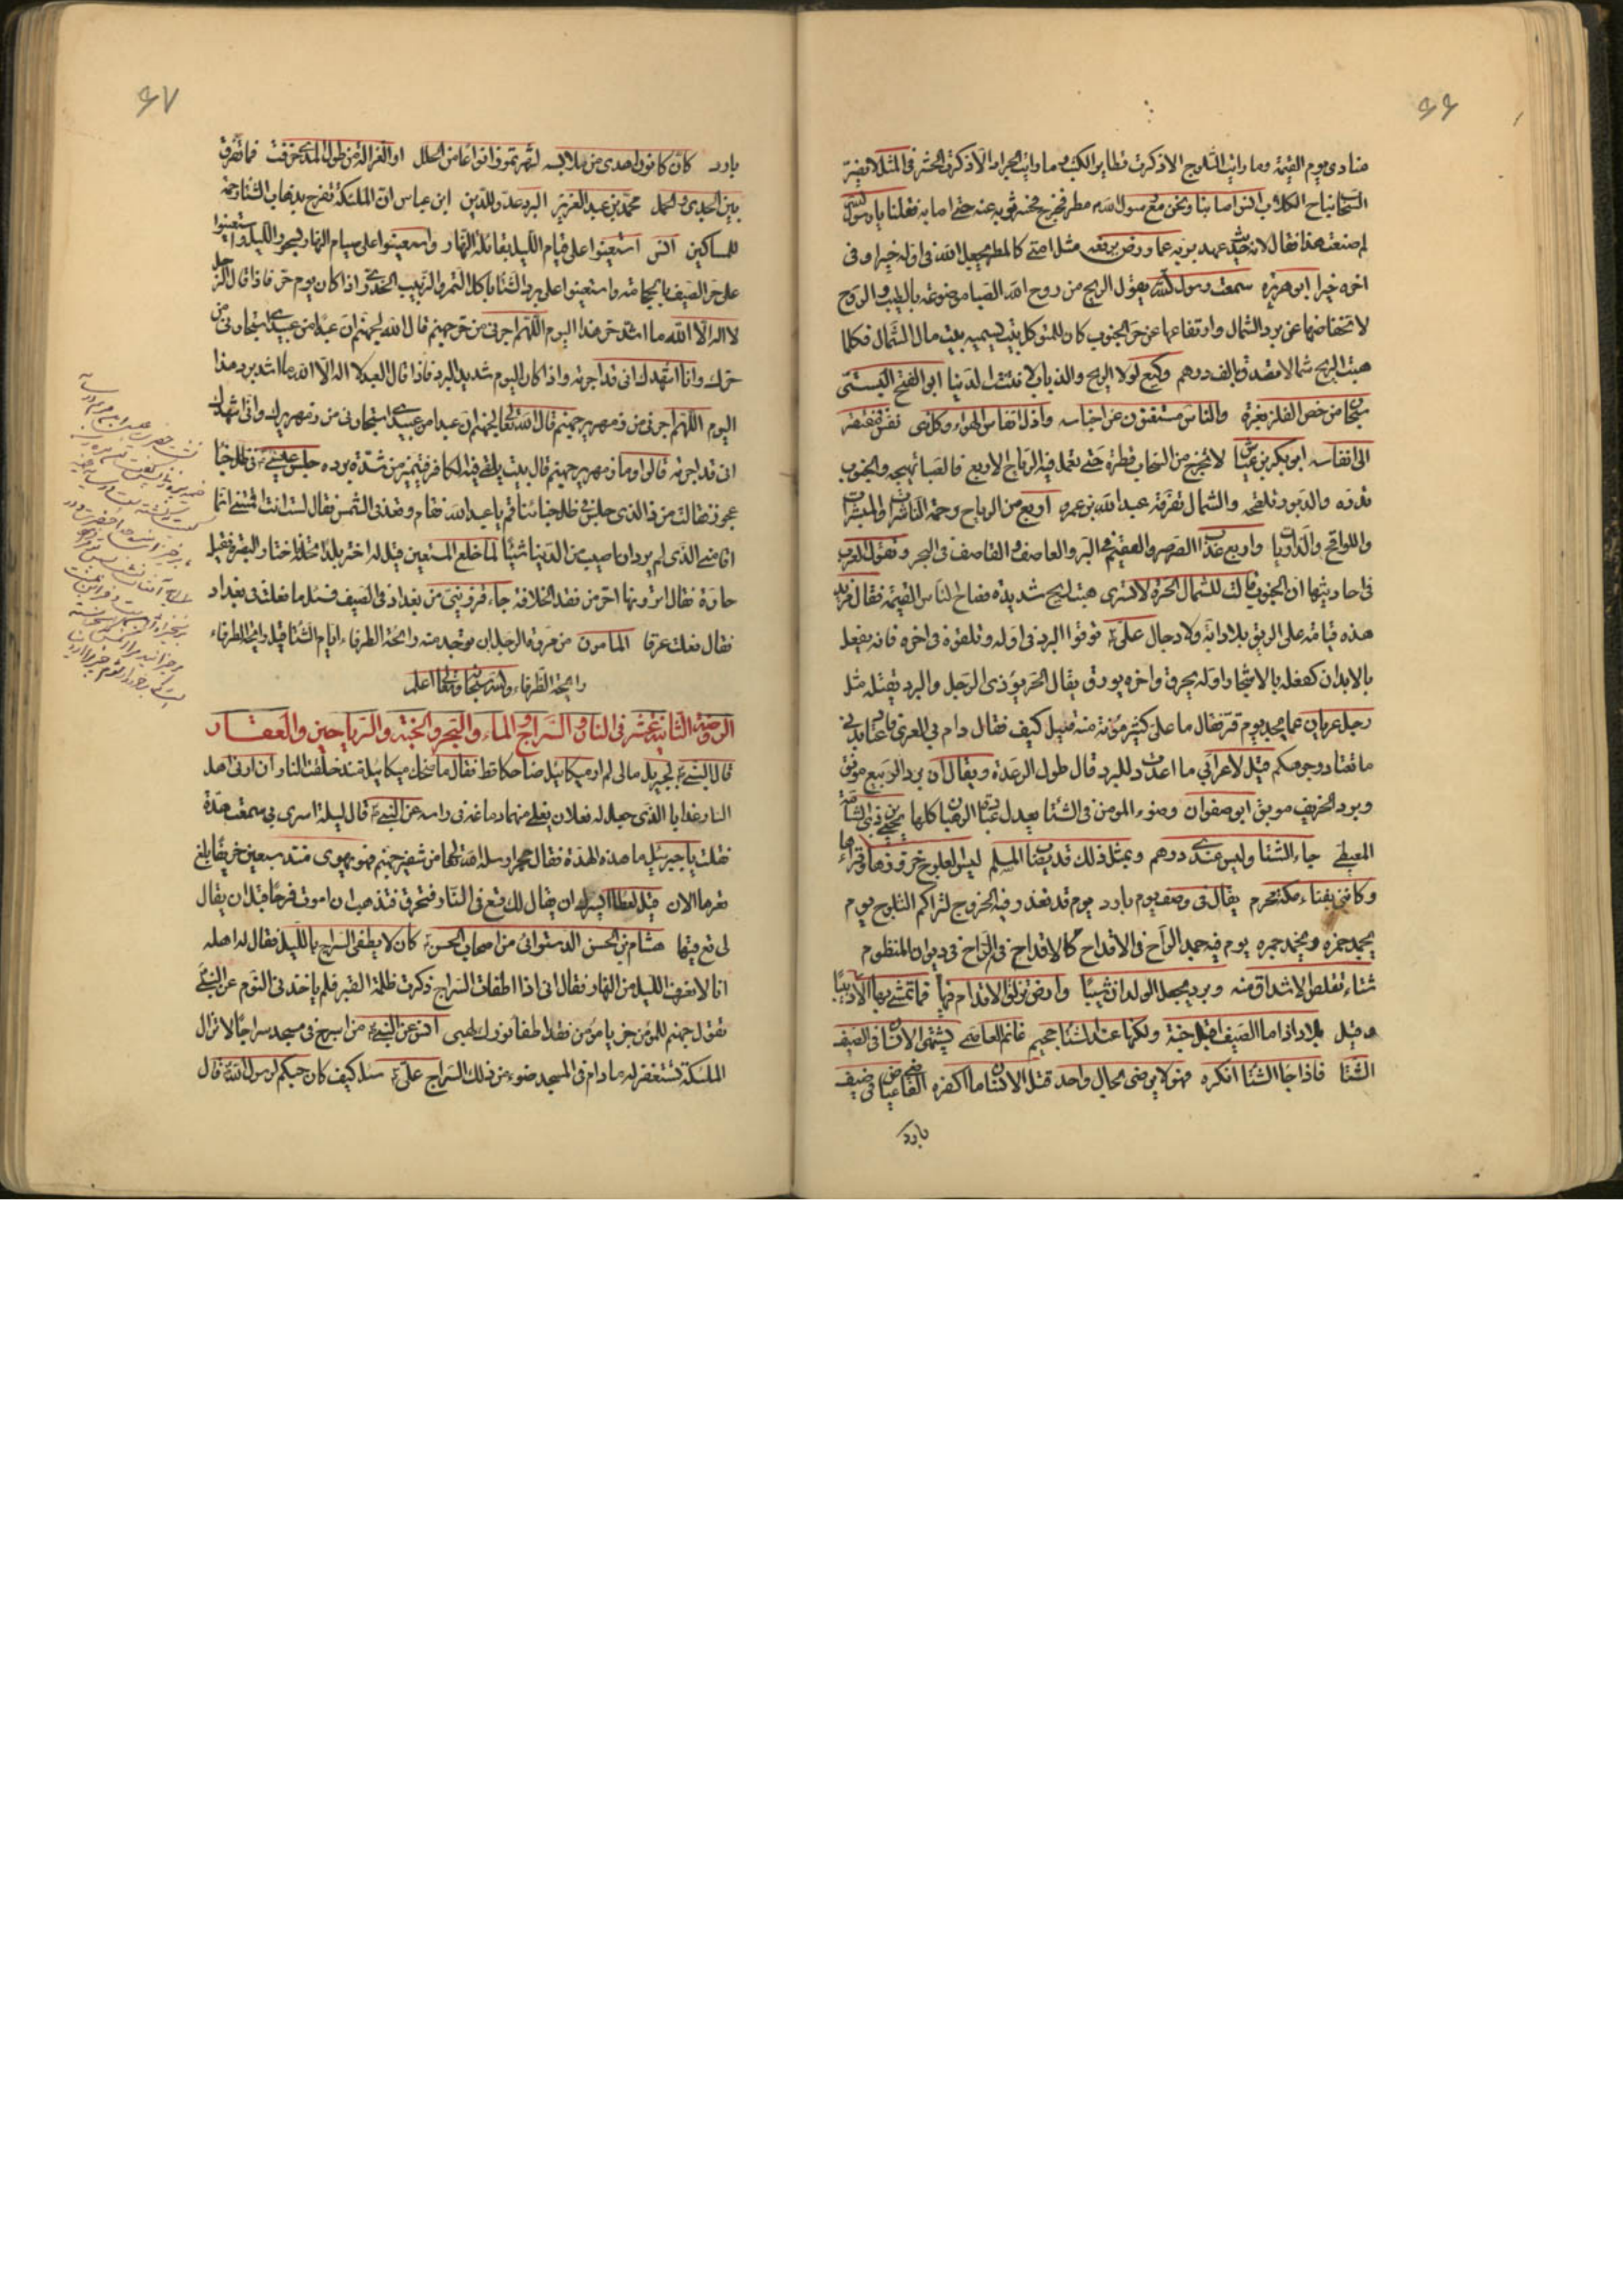 ٦٦
منادى يوم القيمة وما رايت الثلوج الا ذكرت تطاير الكتب وما رايت الجراد الا ذكرت الحشر فى المثل لا يضر
السحاب نباح الكلاب انس اصابنا ونحن مع رسول الله مطر فخرج فحسر ثوبه عنه حتى اصابه فقلنا يا رسول الله
لم صنعت هذا فقال لانه حديث عهد بربه مثل امتى كالمطر يجعل الله فى اوله خيرا وفى
اخره خيرا ابو هريرة سمعت رسول الله يقول الريح من روح الله الصبا موضوعة بالطيب والروح
لانخفاضها عن برد الشمال وارتفاعها عن حر الجنوب كان للمتوكل بيت يسميه بيت مال الشمال فكلما
هبت الريح شمالا تصدق بالف درهم وكيع لولا الريح والذباب لانتنت الدنيا ابو الفتح البستى
سبحان من خص الفلز بعزة والناس مستغنون عن اجناسه واذل انفاس الهواء وكل ذى نفس فمفتقر
الى انفاسه ابو بكر بن عياش لا تخرج من السحاب قطرة حتى تعمل فيه الرياح الاربع فالصبا تهيجه والجنوب
تدره والدبور تلقحه والشمال تفرقه عبد الله بن عمرو اربع من الرياح رحمة الناشرات والمبشرات
واللواقح والذاريات واربع عذاب الصرصر والعقيم فى البر والعاصف والقاصف فى البحر وتقول العرب
فى احاديثها ان الجنوب قالت للشمال الحرة لا تسرى هبت ريح شديدة فصاح الناس القيمة فقال مزبد
هذه قيامة على الريق بلا دابة ولا دجال على ع توقوا البرد فى اوله وتلقوه فى اخره فانه يفعل
بالابدان كفعله بالاشجار اوله يحرق واخره يورق يقال الحر يؤذى الرجل والبرد يقتله مثل
رجل عريان عما يجد يوم قر فقال ما على كثير مؤنة منه قيل كيف فقال دام بى العرى فاعتاد بدنى
ما تعتاد وجوهكم قيل لاعرابى ما اعددت للبرد قال طول الرعدة ويقال ان برد الربيع مونق
وبرد الخريف موبق ابو صفوان وضوء المؤمن فى الشتاء يعدل عبادة الرهبان كلها
جاء الشتا وليس عندى درهم وبمثل ذلك قد يصاب المسلم لبس العلوج خزوزها وفراءها
وكاننى بفناء مكة محرم يقال فى وصف يوم بارد يوم قد تعذر فيه الخروج لتراكم الثلوج يوم
يجمد خمره ويخمد جمره يوم فيه جمد الراح فى الاقداح كالاقداح فى الراح فى ديوان المنظوم
شتاء تقلص الاشداق منه وبرد يجعل الولدان شيبا وارض تزلق الاقدام فيها فما تمشى بها الا دبيبا
وقيل بلاد اذا ما الصيف اقبل جنة ولكنها عند الشتا جحيم غانم العاصمى يشتهى الانسان فى الصيف
الشتا فاذا جا الشتا انكره فهو لا يرضى بحال واحد قتل الانسان ما اكفره
بارد
٦٧
بارد كان كانون اهدى من ملابسه لشهر تموز انواعا من الحلل او الغزالة من طول المدى خرفت فما تفرق
بين الجدى والحمل محمد بن عبد العزيز البرد عدو للدين ابن عباس ان الملئكة تفرح بذهاب الشتا رحمة
للمساكين انس استعينوا على قيام الليل بقائلة النهار واستعينوا على صيام النهار بسحور الليل واستعينوا
على حر الصيف بالحجامة واستعينوا على برد الشتا باكل التمر والزبيب الخدرى واذا كان يوم حر فاذا قال الرجل
لا اله الا الله ما اشد حر هذا اليوم اللهم اجرنى من حر جهنم قال الله لجهنم ان عبدا من عبيدى استجارنى من
حرك وانا اشهدك انى قد اجرته واذا كان اليوم شديد البرد فاذا قال العبد لا اله الا الله ما اشد برد هذا
اليوم اللهم اجرنى من زمهرير جهنم قال الله تعالى لجهنم ان عبدا من عبيدى استجارنى من زمهريرك وانى اشهدك
انى قد اجرته قالوا وما زمهرير جهنم قال بيت يلقى فيه الكافر فيتميز من شدة برده جلس عيسى ع فى ظل خبا
عجوز فقالت من ذا الذى جلس فى ظل خبائنا قم يا عبد الله فقام وقعد فى الشمس فقال لست انت اقمتنى انما
اقامنى الذى لم يرد ان اصيب من الدنيا شيئا لما خلع المستعين قيل له اختر بلدا تحله فاختار البصرة فقيل
حارة فقال اترونها احر من فقد الخلافة جاء قزوينى من بغداد فى الصيف فسئل ما فعلت فى بغداد
فقال فعلت عرقا المامون من مروة الرجل ان يوجد منه رائحة الطرفاء ايام الشتا قيل وما رائحة الطرفاء
رائحة الطرفاء والله سبحانه وتعالى اعلم
الروضة الثانية عشر فى النار والسراج والماء والبحر والجنة والرياحين والعقار
قال النبى ع لجبريل مالى لم ار ميكائيل ضاحكا قط فقال ما ضحك ميكائيل منذ خلقت النار ان ادنى اهل
النار عذابا الذى جعل له نعلان يغلى منهما دماغه فى راسه عن النبى ع قال ليلة اسرى بى سمعت هدة
فقلت يا جبرئيل ما هذه الهدة فقال حجر ارسله الله تعالى من شفير جهنم فهو يهوى منذ سبعين خريفا بلغ
قعرها الان قيل لعطا ايسرك ان يقال لك قع فى النار فتحرق فتذهب ان اموت فرحا قبل ان يقال
لى قع فيها هشام بن الحسن الدستوائى من اصحاب الحسن كان لا يطفى السراج بالليل فقال له اهله
انا لا نعرف الليل من النهار فقال انى اذا اطفات السراج ذكرت ظلمة القبر فلم ياخذنى النوم عن النبى ص
تقول جهنم للمؤمن جز يا مؤمن فقد اطفا نورك لهبى انس عن النبى ع من اسرج فى مسجد سراجا لا تزال
الملئكة تستغفر له ما دام فى المسجد ضوء من ذلك السراج على ع سئل كيف كان حبكم لرسول الله قال